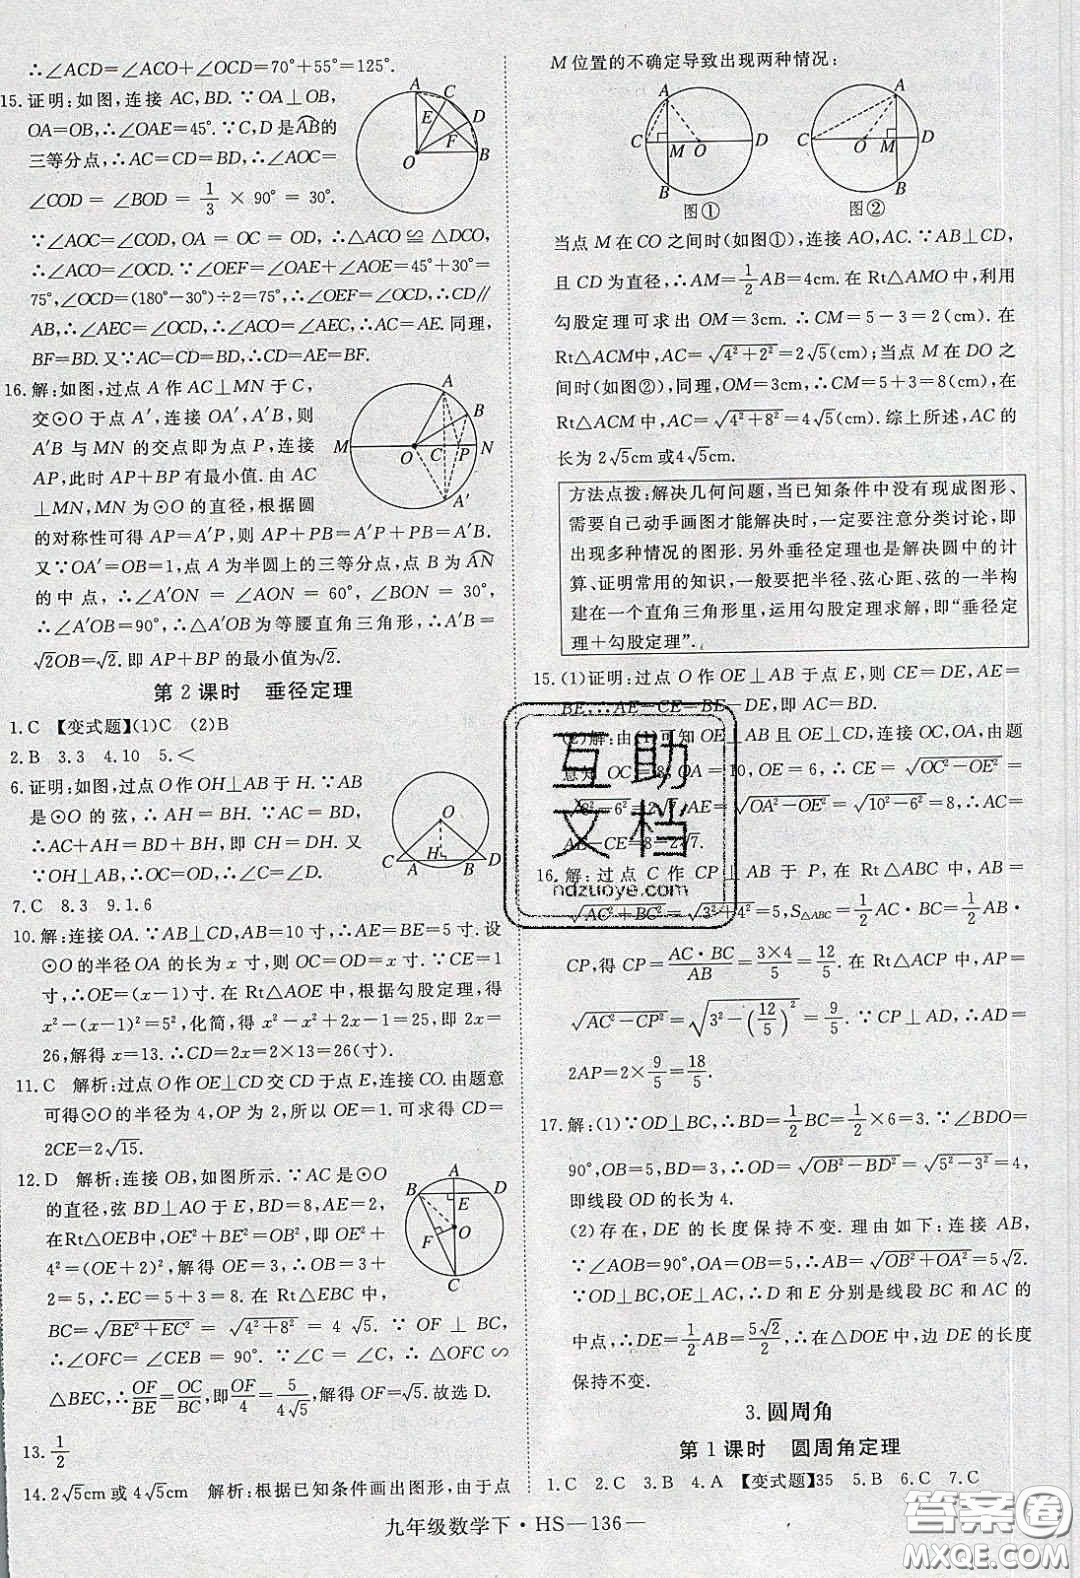 ∴∠ACD=∠ACO+∠OCD=70°+55°=125°.
15.证明:如图,连接 AC,BD.∵OA⊥OB,
OA=OB,∴∠OAE=45°.∵C,D 是AB的
三等分点,∴AC=CD=BD,∴∠AOC=
∠COD = ∠BOD = 1/3 × 90° = 30°.
∵∠AOC=∠COD,OA = OC = OD,∴△ACO ≌ △DCO,
∴∠ACO=∠OCD.∵∠OEF=∠OAE+∠AOE=45°+30°=
75°,∠OCD=(180°-30°)÷2=75°,∴∠OEF=∠OCD,∴CD∥
AB,∴∠AEC=∠OCD,∴∠ACO=∠AEC,∴AC=AE.同理,
BF=BD.又∵AC=CD=BD,∴CD=AE=BF.
16.解:如图,过点 A 作 AC⊥MN 于 C,
交⊙O 于点 A′,连接 OA′,A′B,则
A′B 与 MN 的交点即为点 P,连接
AP,此时 AP+BP 有最小值.由 AC
⊥MN,MN 为⊙O 的直径,根据圆
的对称性可得 AP=A′P,则 AP+PB=A′P+PB=A′B.
又∵OA′=OB=1,点 A 为半圆上的三等分点,点 B 为AN
的中点,∴∠A′ON = ∠AON = 60°,∠BON = 30°,
∴∠A′OB=90°,∴△A′OB 为等腰直角三角形,∴A′B=
√2OB=√2.即 AP+BP 的最小值为√2.
第 2 课时 垂径定理
1.C 【变式题】(1)C (2)B
2.B 3.3 4.10 5.<
6.证明:如图,过点 O 作 OH⊥AB 于 H.∵AB
是⊙O 的弦,∴AH = BH.∵AC = BD,
∴AC+AH=BD+BH,即 CH=DH.又
∵OH⊥AB,∴OC=OD,∴∠C=∠D.
7.C 8.3 9.1.6
10.解:连接 OA.∵AB⊥CD,AB=10 寸,∴AE=BE=5 寸.设
⊙O 的半径 OA 的长为 x 寸,则 OC=OD=x 寸.∵CE=1
寸,∴OE=(x-1)寸.在 Rt△AOE 中,根据勾股定理,得
x²-(x-1)²=5²,化简,得 x²-x²+2x-1=25,即 2x=
26,解得 x=13.∴CD=2x=2×13=26(寸).
11.C 解析:过点 O 作 OE⊥CD 交 CD 于点 E,连接 CO.由题意
可得⊙O 的半径为 4,OP 为 2,所以 OE=1.可求得 CD=
2CE=2√15.
12.D 解析:连接 OB,如图所示.∵AC 是⊙O
的直径,弦 BD⊥AO 于 E,BD=8,AE=2,
在Rt△OEB中,OE²+BE²=OB²,即 OE²+
4²=(OE+2)²,解得 OE = 3,∴OB = 3+2
=5,∴EC=5+3=8.在 Rt△EBC 中,
BC=√BE²+EC² = √4²+8² = 4 √5.∵ OF ⊥ BC,
∴∠OFC = ∠CEB = 90°.∵∠C = ∠C,∴△OFC∽
△BEC,∴OF/BE=OC/BC,即OF/4=5/4√5,解得 OF=√5.故选 D.
13.1/2
14.2√5cm 或 4√5cm 解析:根据已知条件画出图形,由于点
M 位置的不确定导致出现两种情况:
图① 图②
当点 M 在 CO 之间时(如图①),连接 AO,AC.∵AB⊥CD,
且 CD 为直径,∴AM=1/2AB=4cm.在 Rt△AMO 中,利用
勾股定理可求出 OM=3cm.∴CM=5-3=2(cm).在
Rt△ACM中,AC=√4²+2²=2√5(cm);当点 M 在 DO 之
间时(如图②),同理,OM=3cm,∴CM=5+3=8(cm).在
Rt△ACM 中,AC=√4²+8²=4√5(cm).综上所述,AC 的
长为 2√5cm 或4√5cm.
方法点拨:解决几何问题,当已知条件中没有现成图形、
需要自己动手画图才能解决时,一定要注意分类讨论,即
出现多种情况的图形.另外垂径定理也是解决圆中的计
算、证明常用的知识,一般要把半径、弦心距、弦的一半构
建在一个直角三角形里,运用勾股定理求解,即“垂径定
理+勾股定理”.
15.(1)证明:过点 O 作 OE⊥AB 于点 E,则 CE=DE,AE=
BE,∴AE-CE=BE-DE,即 AC=BD.
(2)解:由(1)可知 OE⊥AB 且 OE⊥CD,连接 OC,OA,由题
意知 OC=8,OA=10,OE=6,∴CE=√OC²-OE²=
√8²-6²=2√7,AE=√OA²-OE²=√10²-6²=8,∴AC=
AE-CE=8-2√7.
16.解:过点 C 作 CP⊥AB 于 P,在 Rt△ABC 中,AB=
√AC²+BC²=√3²+4²=5,S△ABC=1/2AC·BC=1/2AB·
CP,得 CP=AC·BC/AB=3×4/5=12/5.在 Rt△ACP 中,AP=
√AC²-CP²=√3²-(12/5)²=9/5.∵CP⊥AD,∴AD=
2AP=2×9/5=18/5.
17.解:(1)∵OD⊥BC,∴BD=1/2BC=1/2×6=3.∵∠BDO=
90°,OB=5,BD=3,∴OD=√OB²-BD²=√5²-3²=4,
即线段 OD 的长为 4.
(2)存在,DE 的长度保持不变.理由如下:连接 AB,
∵∠AOB=90°,OA=OB=5,∴AB=√OB²+OA²=5√2.
∵OD⊥BC,OE⊥AC,∴D 和 E 分别是线段 BC 和 AC 的
中点,∴DE=1/2AB=5√2/2,∴在△DOE 中,边 DE 的长度
保持不变.
3.圆周角
第 1 课时 圆周角定理
1.C 2.C 3.B 4.A 【变式题】35 5.B 6.C 7.C
九年级数学下·HS—136—
互助
文档
ndzuoye.com
答案圈
MXQE.COM